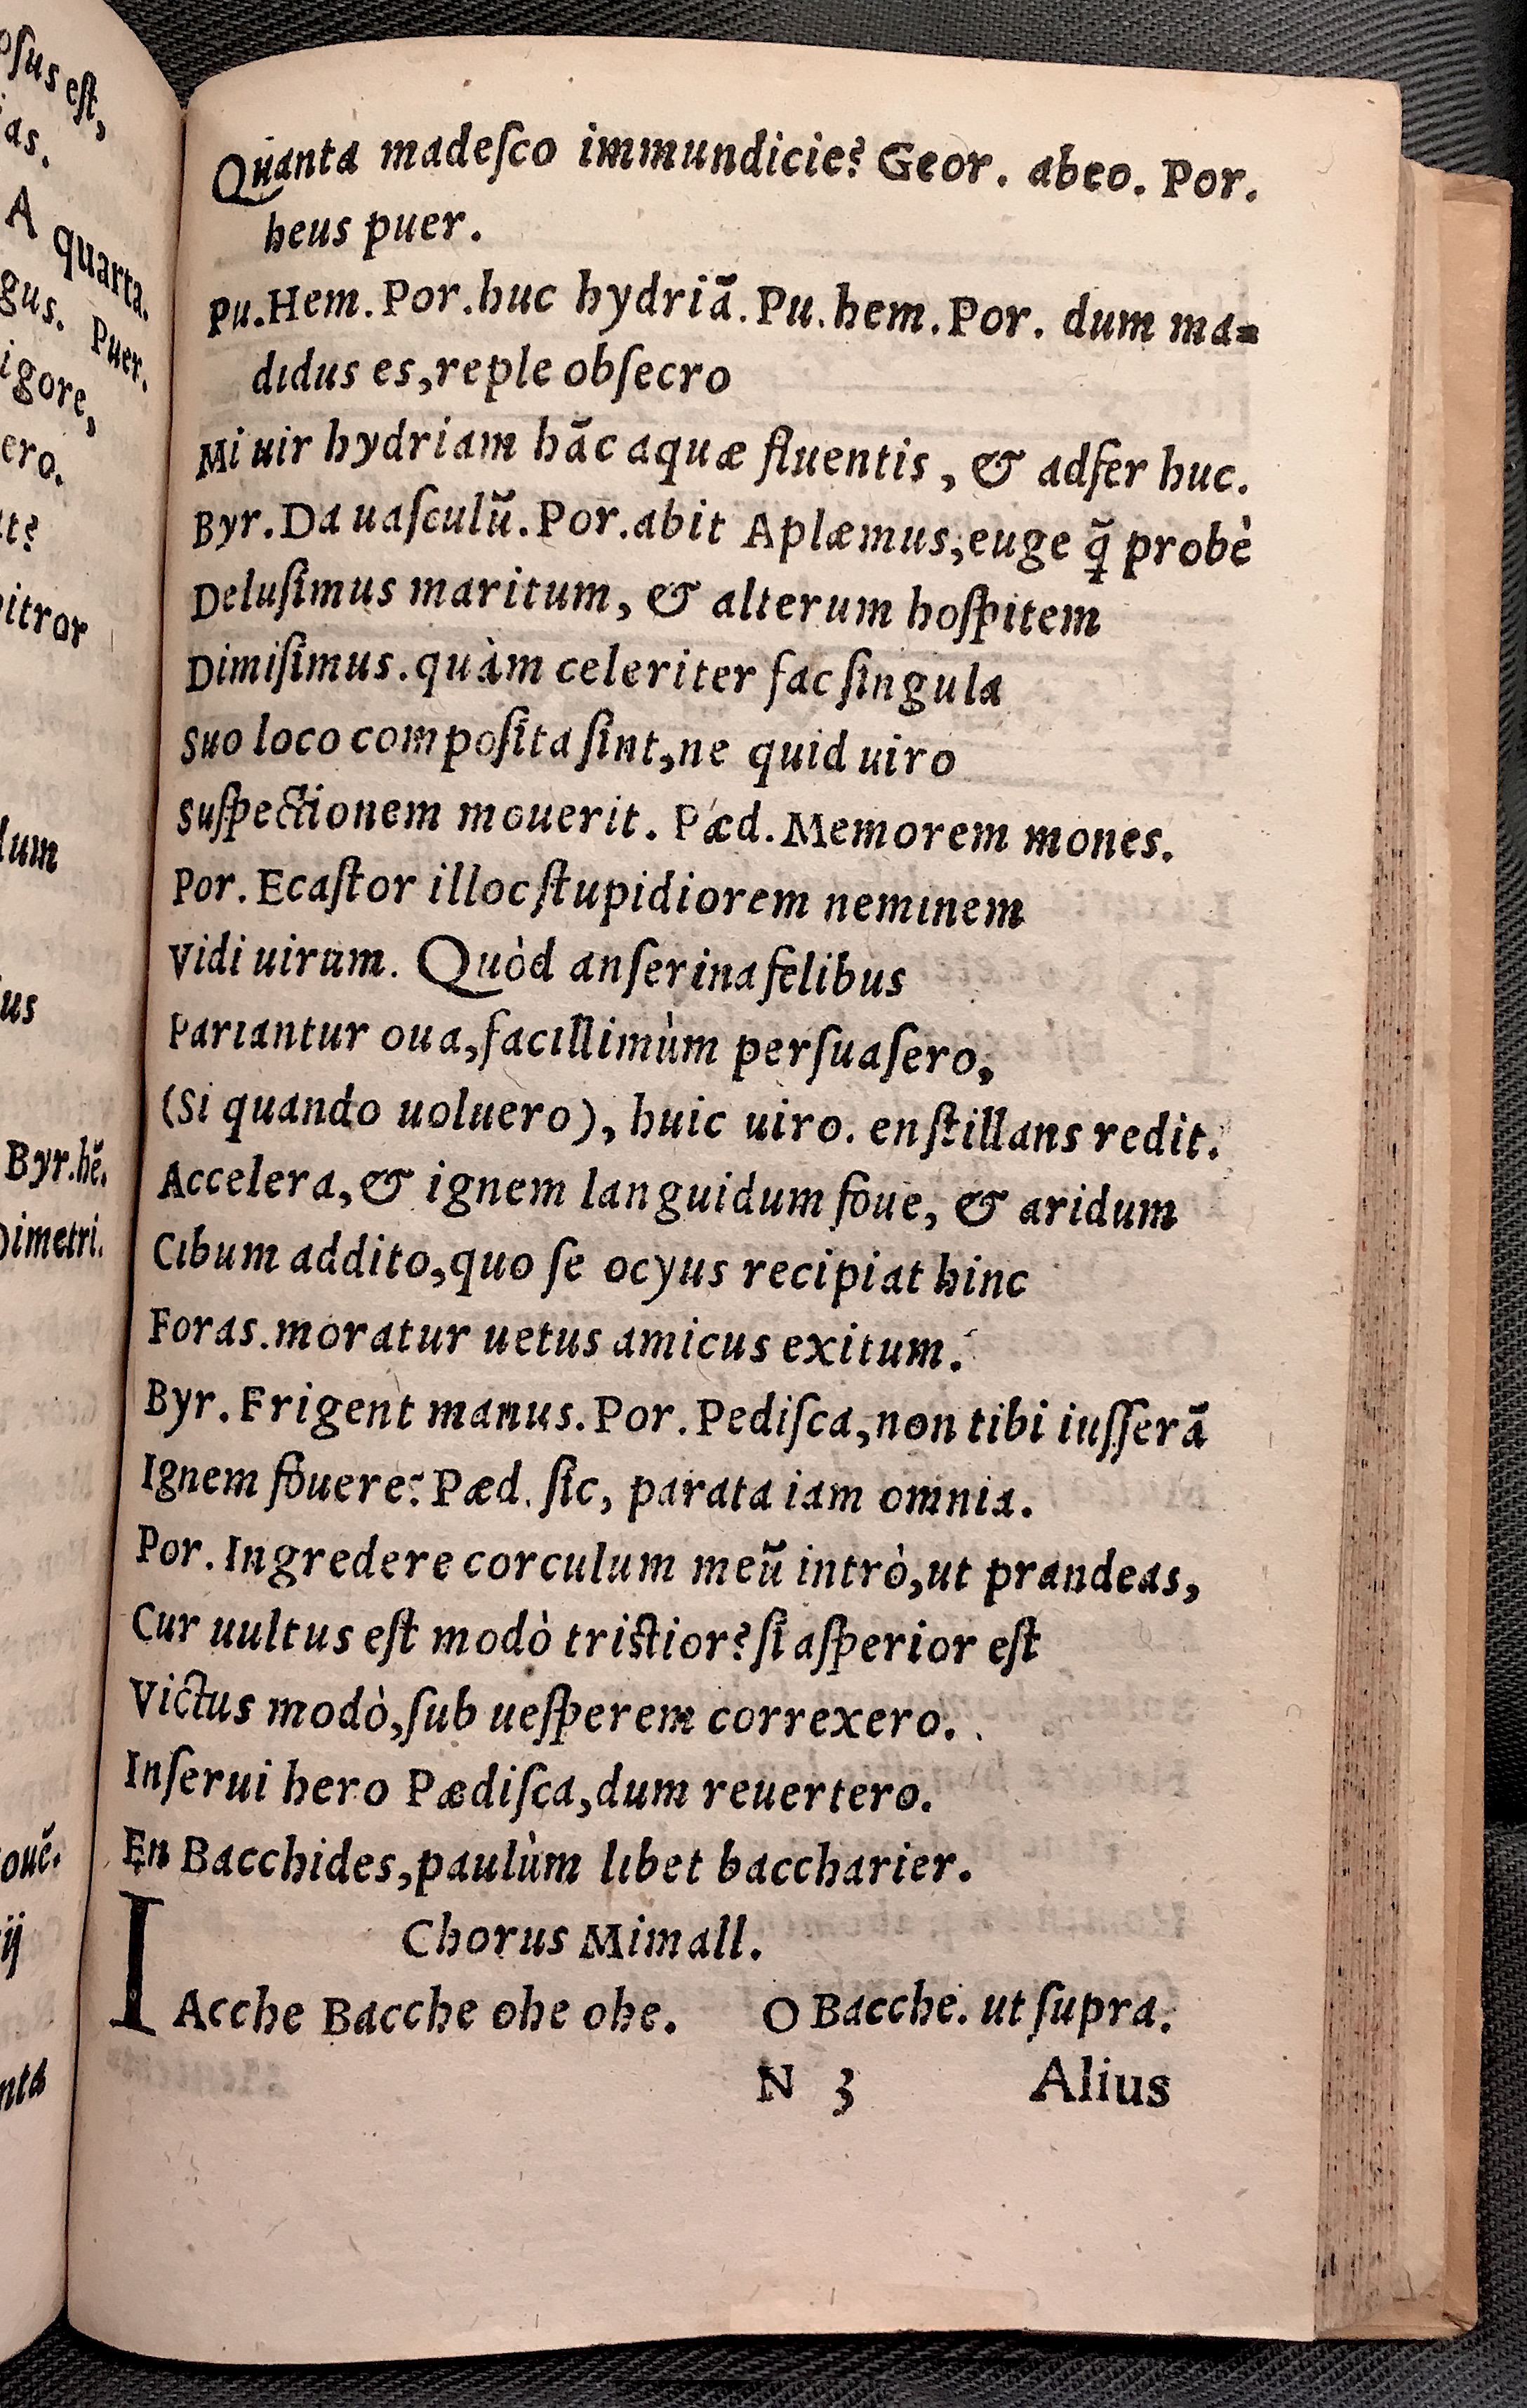 oſus eſt,
as.
A quarta.
gus. Puer.
igore,
ero.
it?
bitror
dum
us
Byr.hē.
Dimetri.
ouē.
ij
nta
Quanta madeſco immundicie? Geor. abeo. Por.
heus puer.
Pu.Hem.Por.huc hydriā.Pu.hem.Por. dum ma=
didus es,reple obſecro
Mi uir hydriam hāc aquæ fluentis, & adfer huc.
Byr.Da uaſculū.Por.abit Aplæmus,euge q̄ probè
Deluſimus maritum, & alterum hoſpitem
Dimiſimus.quàm celeriter fac ſingula
Suo loco compoſita ſint,ne quid uiro
Suſpectionem mouerit. Pæd.Memorem mones.
Por.Ecaſtor illoc ſtupidiorem neminem
Vidi uirum. Quòd anſerina felibus
Pariantur oua,facillimùm perſuaſero,
(Si quando uoluero), huic uiro. en ſtillans redit.
Accelera,& ignem languidum foue, & aridum
Cibum addito,quo ſe ocyus recipiat hinc
Foras.moratur uetus amicus exitum.
Byr.Frigent manus.Por.Pediſca,non tibi iuſſerā
Ignem fouere? Pæd. ſic, parata iam omnia.
Por.Ingredere corculum meū intrò,ut prandeas,
Cur uultus eſt modò triſtior? ſi aſperior eſt
Victus modò,ſub ueſperem correxero.
Inſerui hero Pædiſca,dum reuertero.
En Bacchides,paulùm libet baccharier.
Chorus Mimall.
IAcche Bacche ohe ohe. O Bacche. ut ſupra.
N 3 Alius